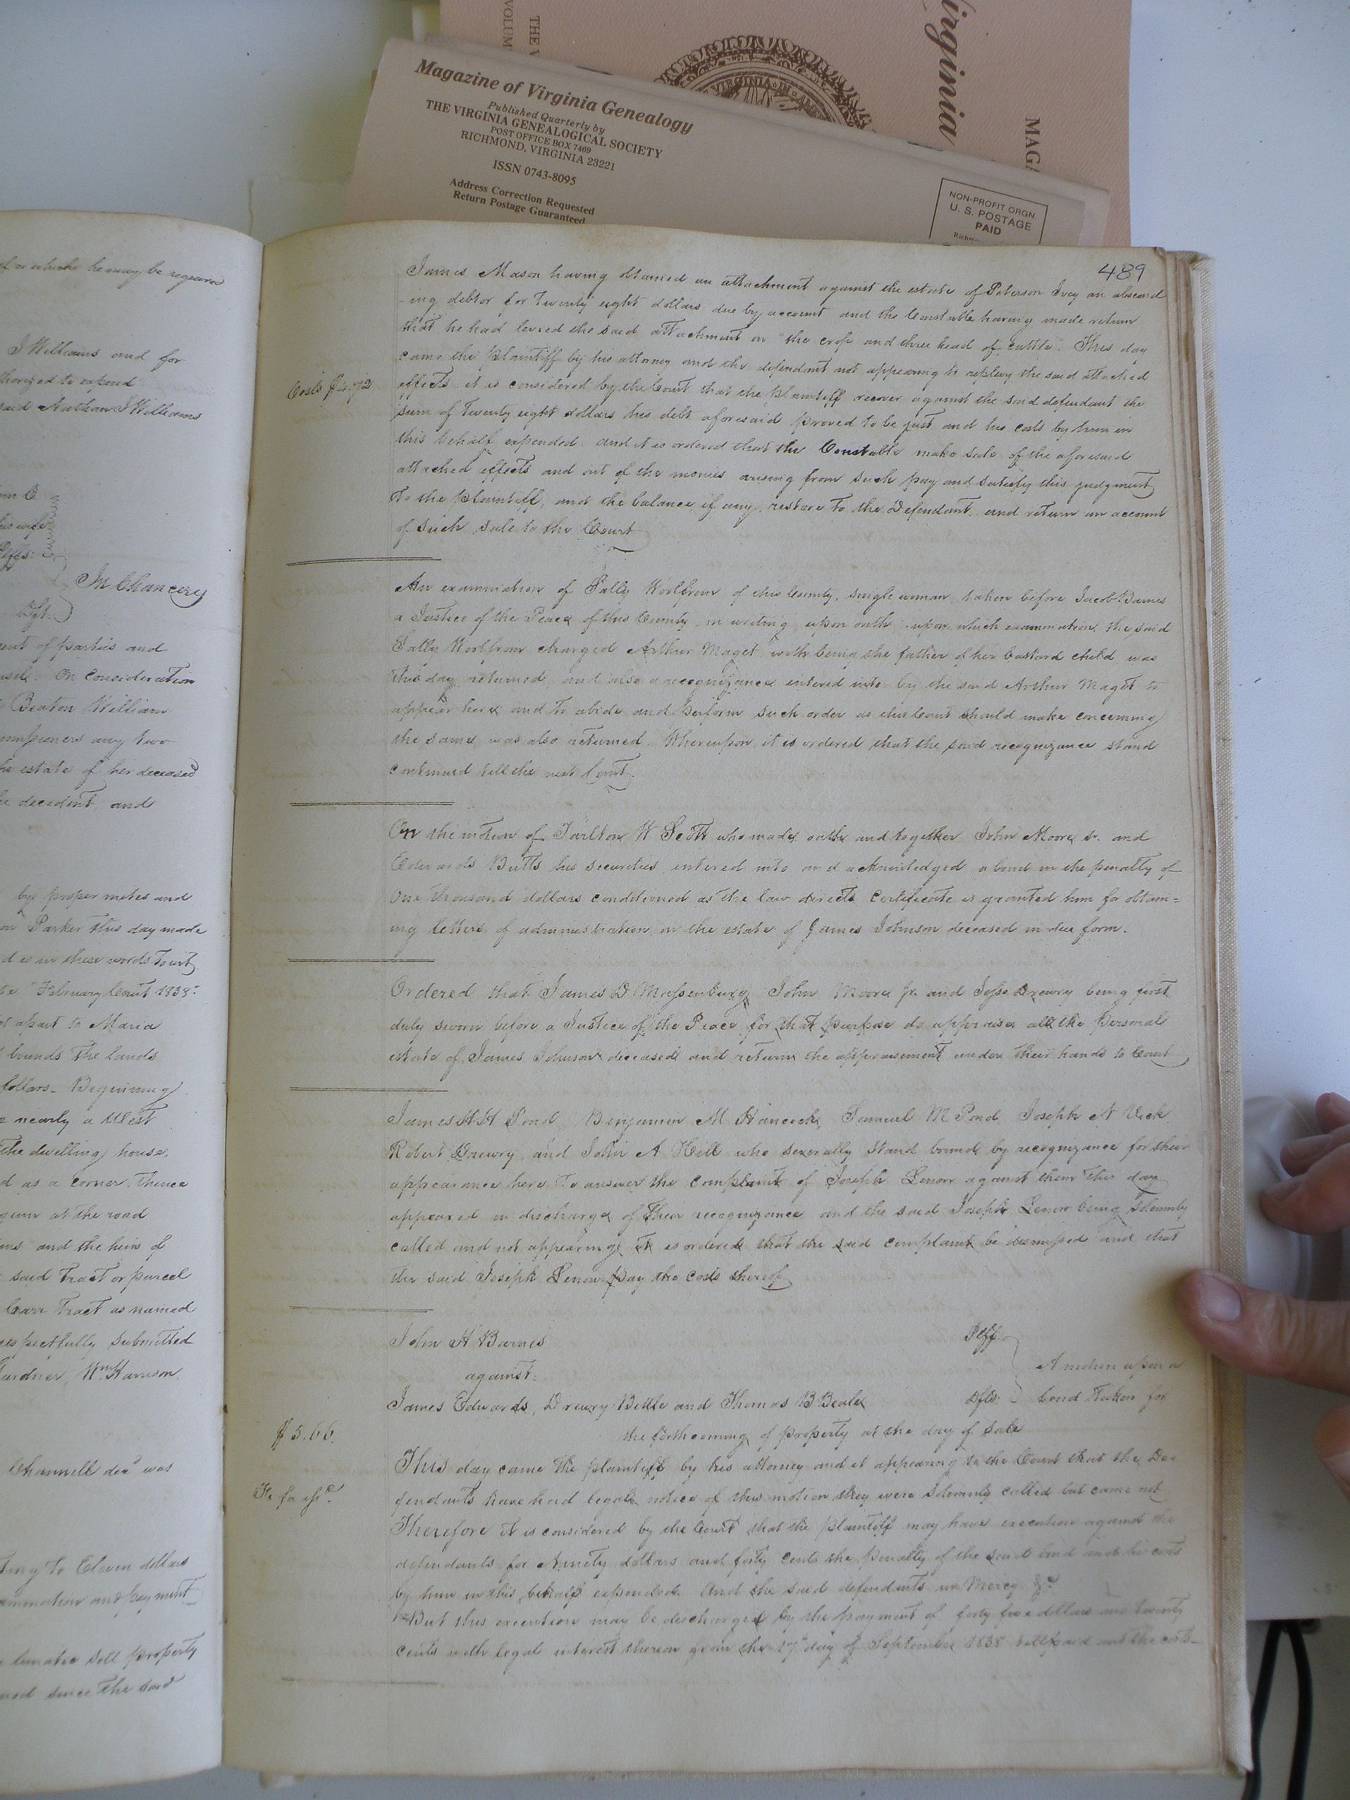 Virginia
MAGA
THE V
VOLUM
VIRGINIA
Magazine of Virginia Genealogy
Published Quarterly by
THE VIRGINIA GENEALOGICAL SOCIETY
POST OFFICE BOX 7469
RICHMOND, VIRGINIA 23221
ISSN 0743-8095
Address Correction Requested
Return Postage Guaranteed
NON-PROFIT ORGN.
U. S. POSTAGE
PAID
of or which he may be requir
J Williams and for
thorized to expend
said Nathan J Williams
his wife
In Chancery
Dft.
ent of parties and
On consideration
Beaton William
ommissioners any two
he estate of her deceased
decedent, and
by proper metes and
Parker this day made
d is in these words Towit
February Court 1838
apart to Maria
bounds the lands
follars. Beginning
nearly a West
the dwelling house,
d as a corner, thence
gum at the road
and the heirs of
said Tract or parcel
Carr Tract as named
espectfully submitted
Gardner, Wm Harrison
Channell decd was
ting to Eleven dollars
and payment
lunatic sell property
since the said
489
James Mason having obtained an attachment against the estate of Peterson Ivey an abscond
-ing debtor for twenty eight dollars due by account and the Constable having made return
that he had levied the said attachment on "the crop and three head of cattle". This day
came the Plaintiff by his attorney and the defendant not appearing to replevy the said attached
Costs $4.72
effects it is considered by the Court that the Plaintiff recover against the said defendant the
sum of twenty eight dollars his debt aforesaid proved to be just and his costs by him in
this behalf expended. and it is ordered that the Constable make sale of the aforesaid
attached effects and out of the monies arising from such pay and satisfy this judgment
to the Plaintiff, and the balance if any, restore to the Defendant, and return an account
of such sale to the Court
An examination of Sally Worlbrow of this County, single woman, taken before Jacob Barnes
a Justice of the Peace of this County in writing upon oath, upon which examination the said
Sally Worlbrow charged Arthur Maget with being the father of her bastard child was
this day returned, and also a recognizance entered into by the said Arthur Maget to
appear here and to abide and perform such order as this Court should make concerning
the same, was also returned. Whereupon it is ordered that the said recognizance stand
continued till the next Court.
On the motion of Tarlton W Scott who made oath and together John Moore Jr. and
Edwards Butts his securities entered into and acknowledged a bond in the penalty of
One thousand dollars conditioned as the law directs Certificate is granted him for obtain=
ing letters of administration on the estate of James Johnson deceased in due form.
Ordered that James D Massenburg, John Moore Jr. and Jesse Drewry being first
duly sworn before a Justice of the Peace for that purpose do appraise all the personal
estate of James Johnson deceased and return the appraisement under their hands to Court
James H H Pond, Benjamin M Hancock, Samuel M Pond, Joseph N Vick
Robert Drewry, and John A Hill who severally stand bound by recognizance for their
appearance here to answer the complaint of Joseph Lenow against them this day
appeared in discharge of their recognizance and the said Joseph Lenow being solemnly
called and not appearing, it is ordered that the said complaint be dismissed and that
the said Joseph Lenow pay the costs thereof
John H Barnes Pltff
A motion upon a
against
James Edwards, Drewry Bittle and Thomas B Beale Dfts. bond taken for
$5.66. the forthcoming of property at the day of sale
This day came the plaintiff by his attorney and it appearing to the Court that the De-
fendants have had legal notice of this motion they were solemnly called but came not
Therefore it is considered by the Court that the plaintiff may have execution against the
defendants for Ninety dollars and forty cents the penalty of the said bond and his costs
by him in this behalf expended. And the said defendants in Mercy &c
But this execution may be discharged by the payment of forty five dollars and twenty
cents with legal interest thereon from the 17th day of September 1838 till paid and the costs